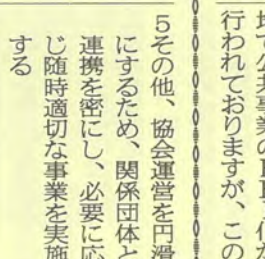 行われておりますが、この
5その他、協会運営を円滑
にするため、関係団体と
連携を密にし、必要に応
じ随時適切な事業を実施
する